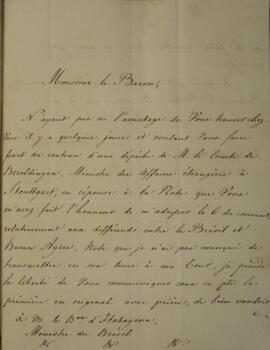 Monsieur le Baron,
N'ayant pas eu l'avantage de Vous trouver chez
Vous il y a quelques jours et voulant Vous faire
part du contenu d'une dépêche de M. le Comte de
Beroldingen, Ministre des Affaires étrangères à
Stouttgart, en réponse à la Note que Vous
m'avez fait l'honneur de m'adresser le 6 du courant,
relativement aux différends entre le Brésil et
Buenos Ayres, Note que je n'ai pas manqué de
transmettre en son tems à ma Cour, je prends
la liberté de Vous communiquer sous ce pli la
première en original avec prière, de bien vouloir
à M. le Bon d'Itabayana,
Ministre du Brésil